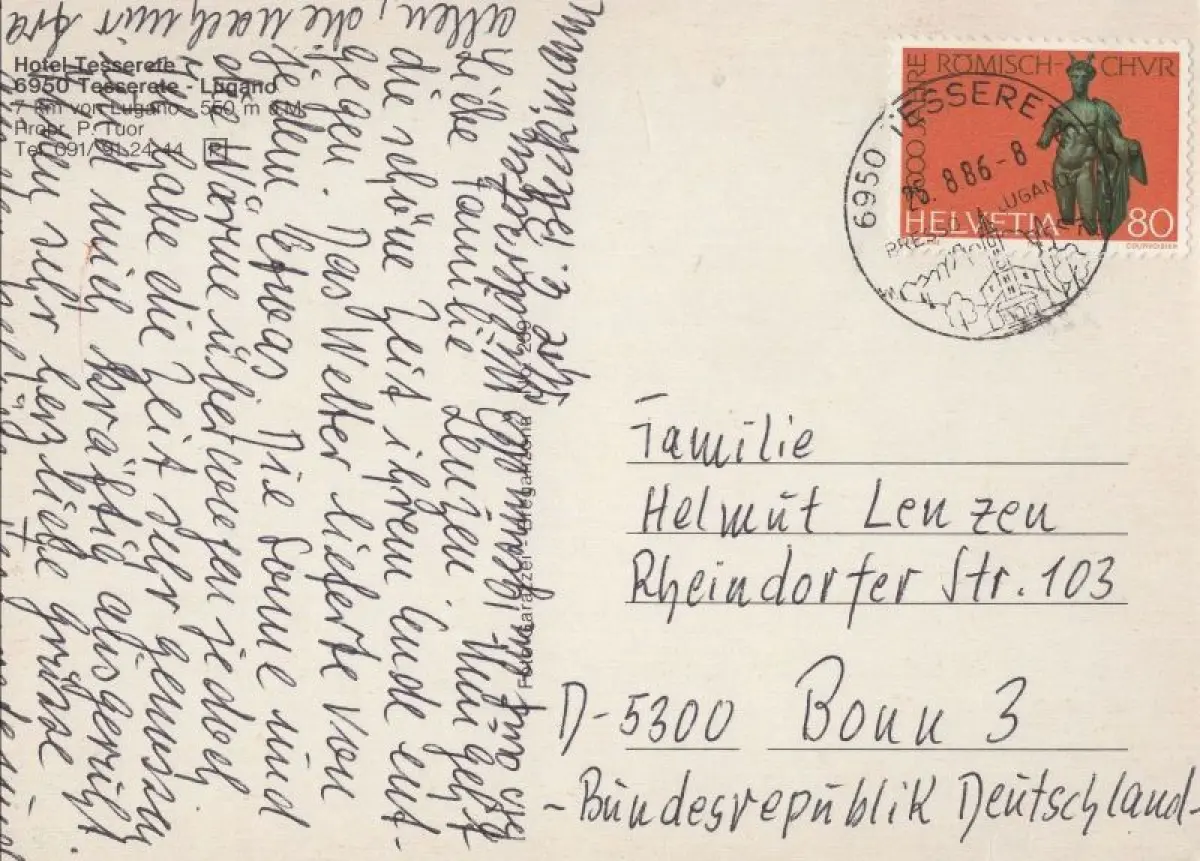 Hotel Tesserete
6950 Tesserete - Lugano
7 km von Lugano - 550 m ü.M.
Propr. P. Tuor
Tel. 091/ 91 24 44 P
Liebe Familie Lenzen. Nun geht
die schöne Zeit ihrem Ende ent-
gegen. Das Wetter lieferte von
jedem Etwas. Die Sonne und
die Wärme überwogen jedoch.
Ich habe die Zeit sehr genossen
und mich kräftig ausgeruht.
Ihnen sehr herzliche Grüsse
allen, die nach mir fra
Breckmann
2000 JAHRE RÖMISCH-CHUR
HELVETIA 80
COURVOISIER
6950 TESSERETE
8.86-8
PRESSO LUGANO
Familie
Helmut Lenzen
Rheindorfer Str. 103
D-5300 Bonn 3
-Bundesrepublik Deutschland-